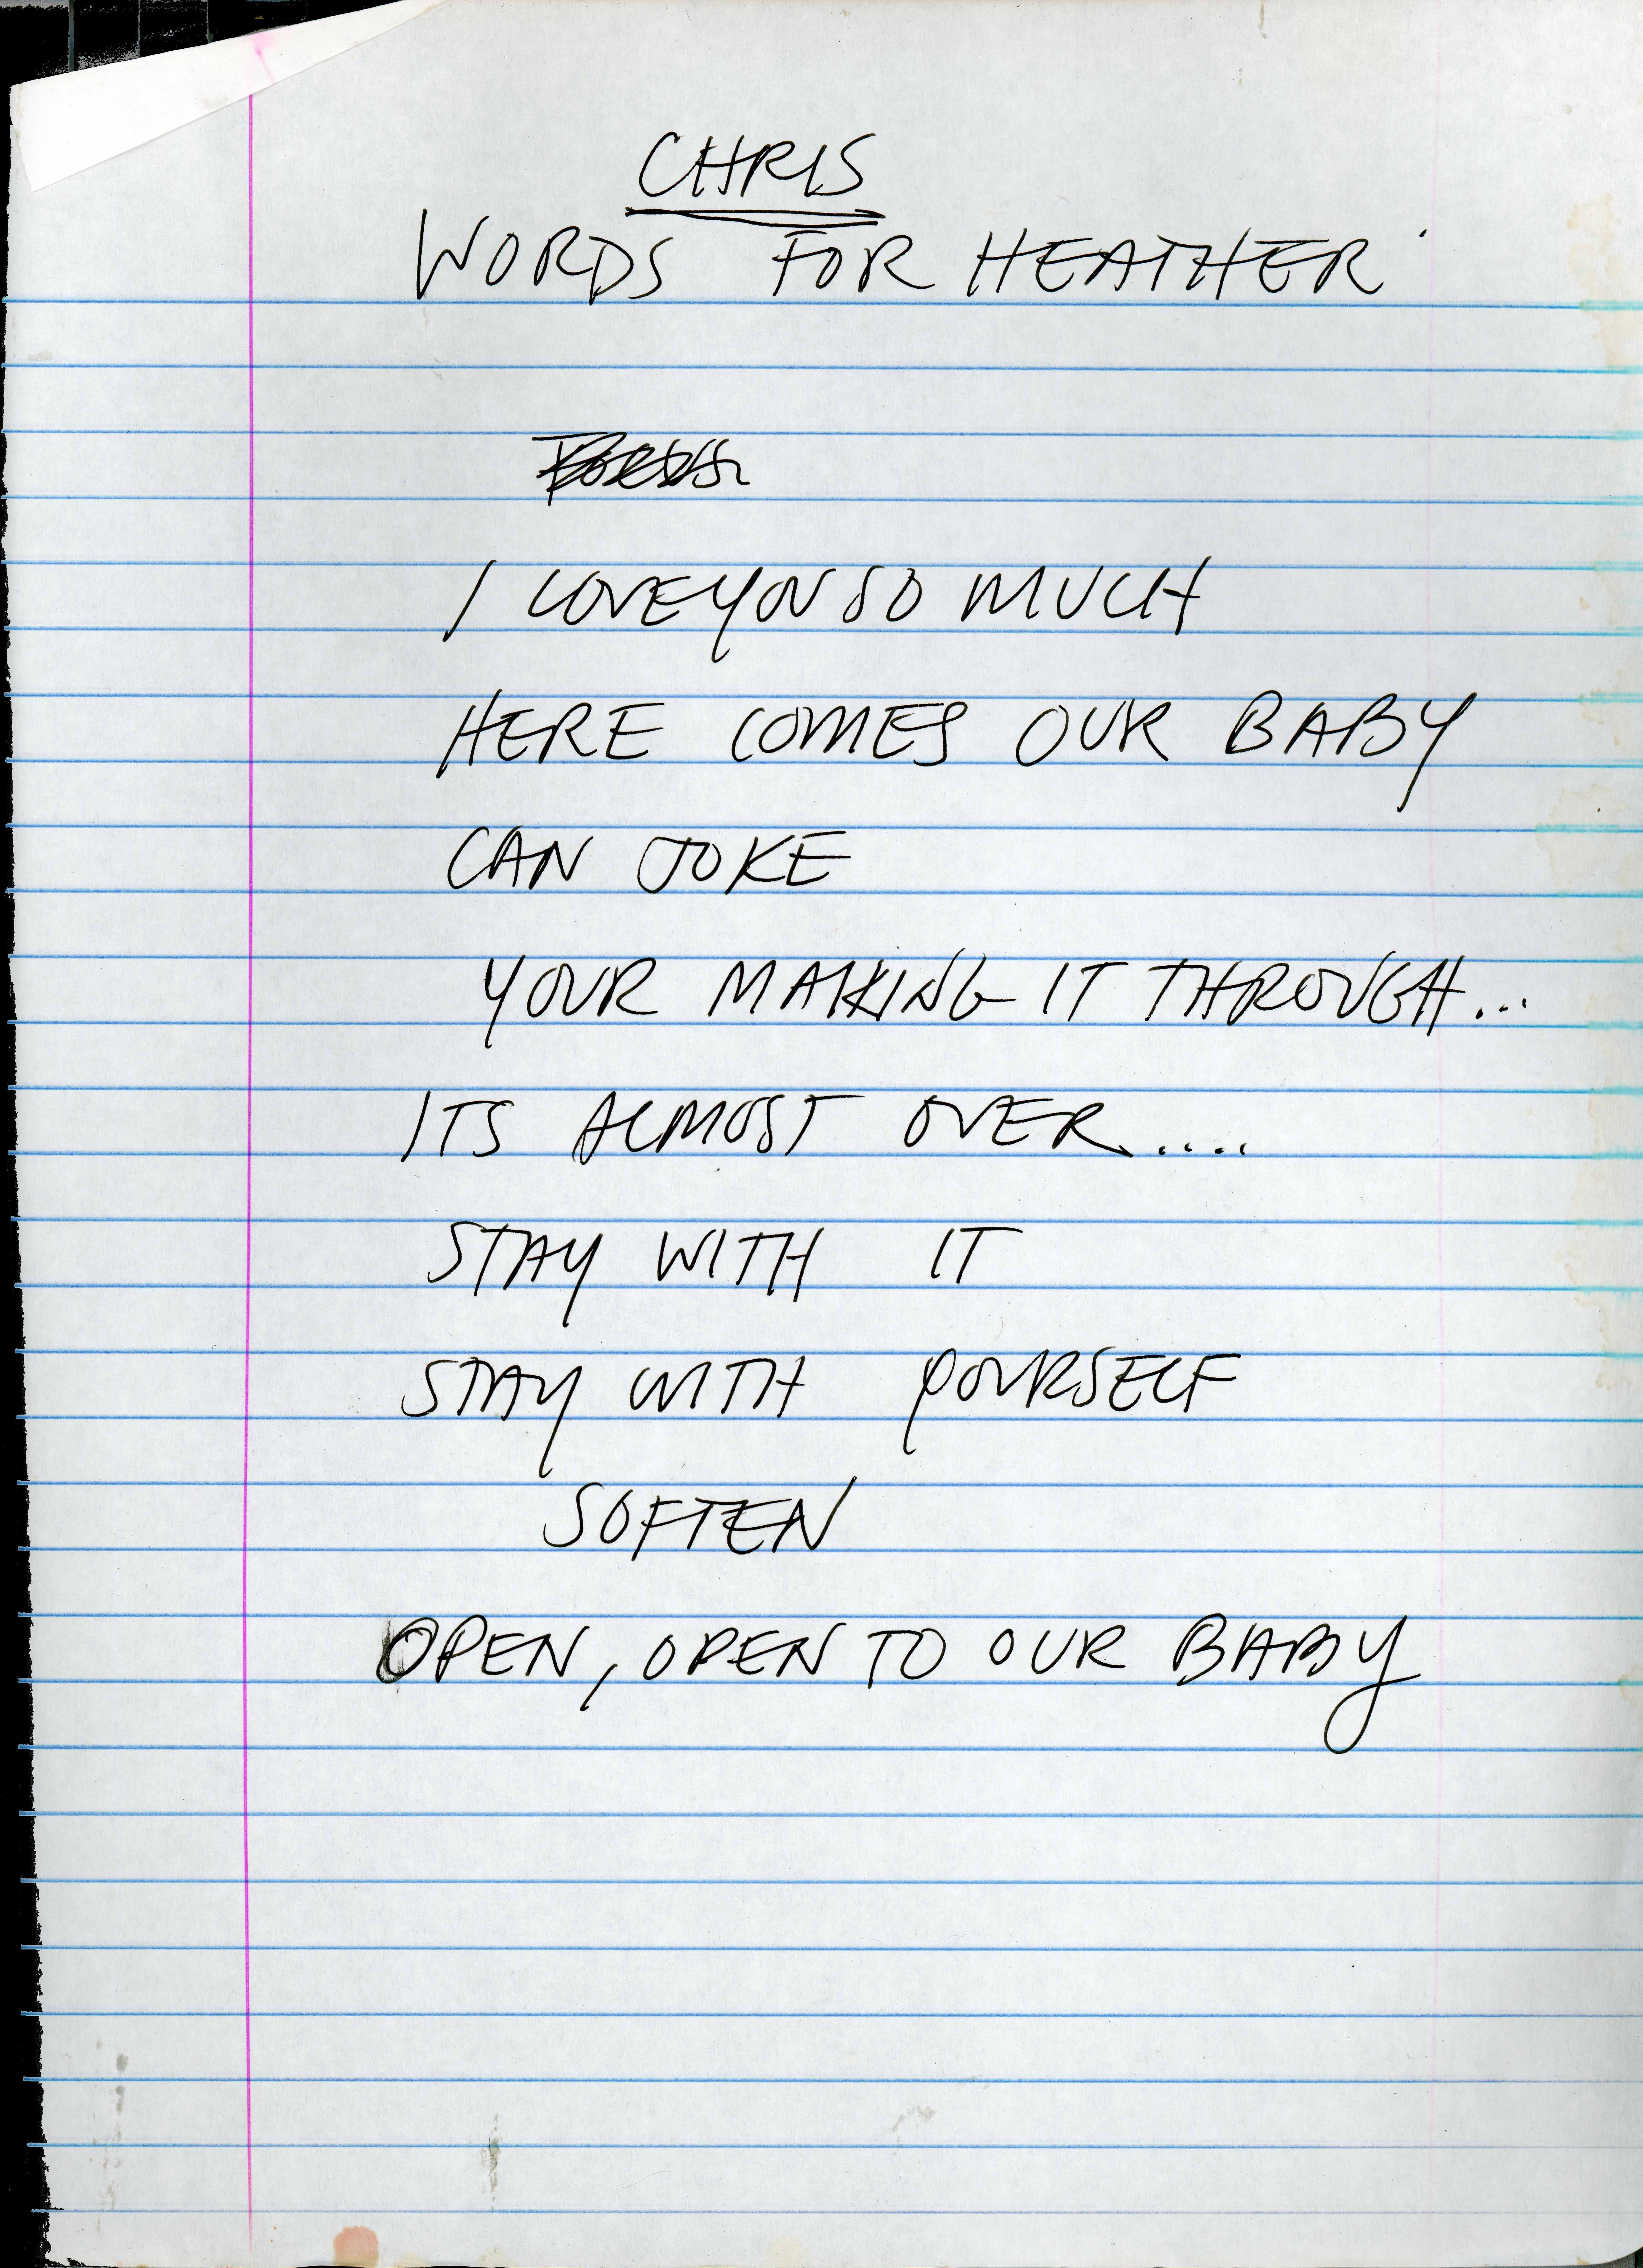 CHRIS
WORDS FOR HEATHER
I LOVE YOU SO MUCH
HERE COMES OUR BABY
CAN JOKE
YOUR MAKING IT THROUGH...
ITS ALMOST OVER.....
STAY WITH IT
STAY WITH YOURSELF
SOFTEN
OPEN, OPEN TO OUR BABY